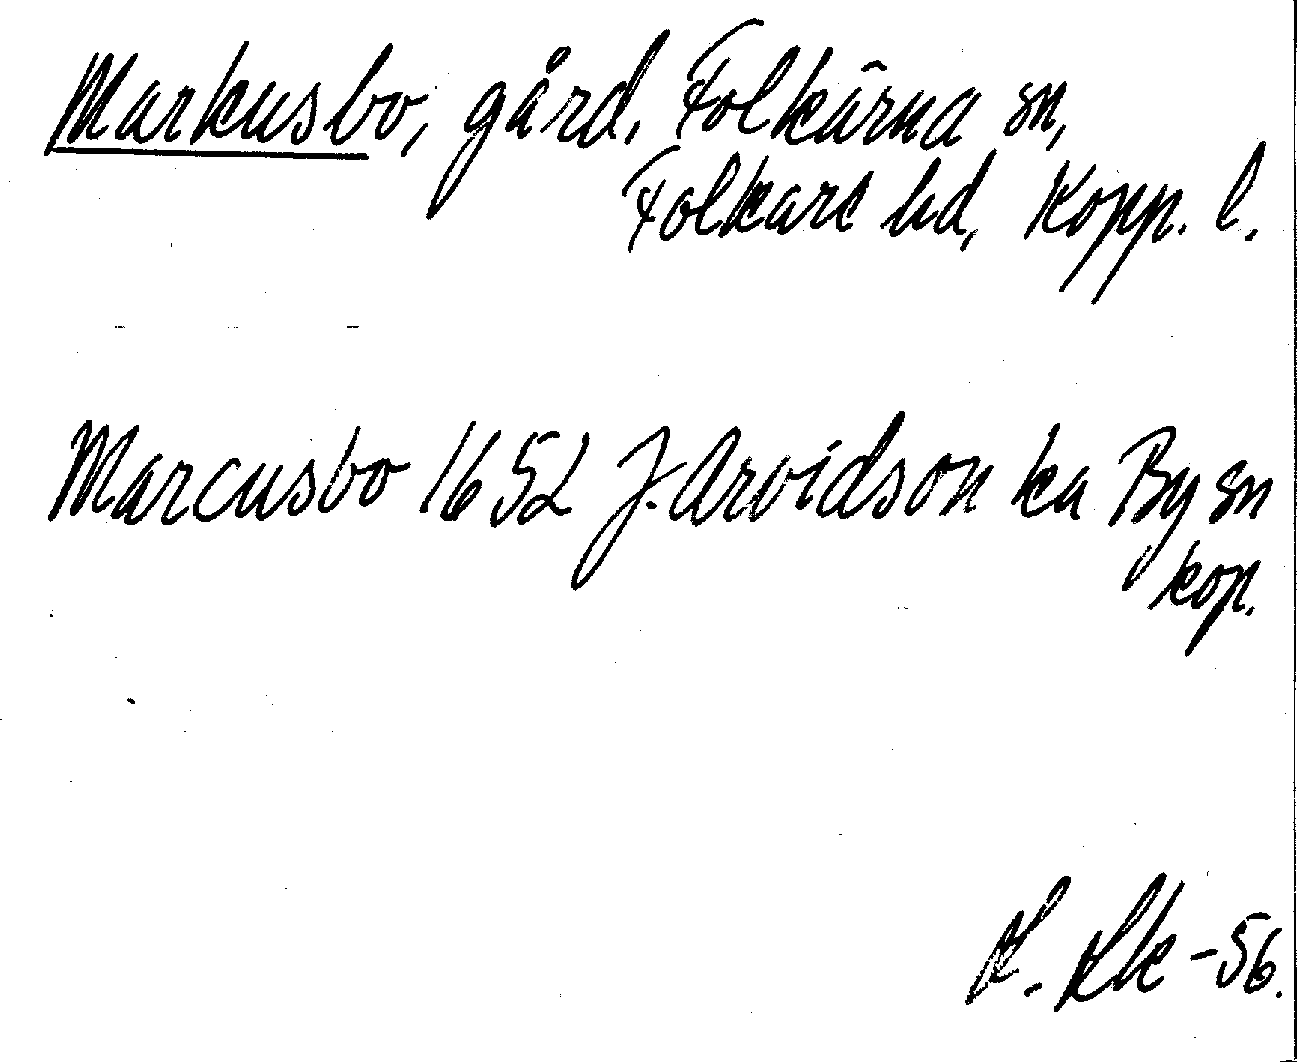 Markusbo, gård, Folkärna sn,
Folkare hd, Kopp. l.
Marcusbo 1652 J. Arvidson ka By sn
kop.
-56.